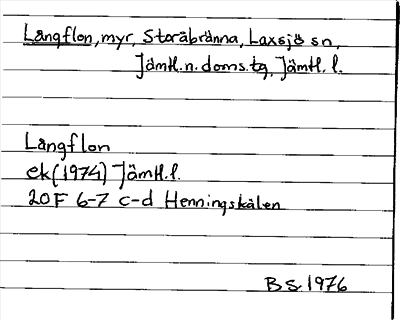 Långflon, myr, Storåbränna, Laxsjö sn,
Jämtl. n. doms. tg, Jämtl. l.
Långflon
ek (1974) Jämtl. l.
20F 6-7 c-d Henningskälen
BS. 1976